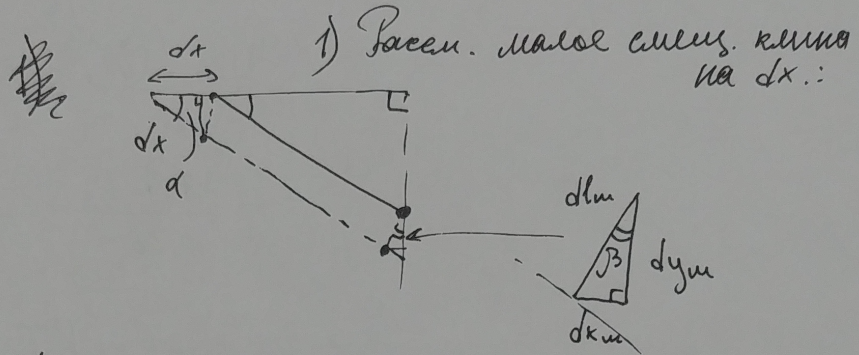 1) Рассм. малое смещ. клина
на dx.:
dx
dx
α
dlm
β
dym
dxm